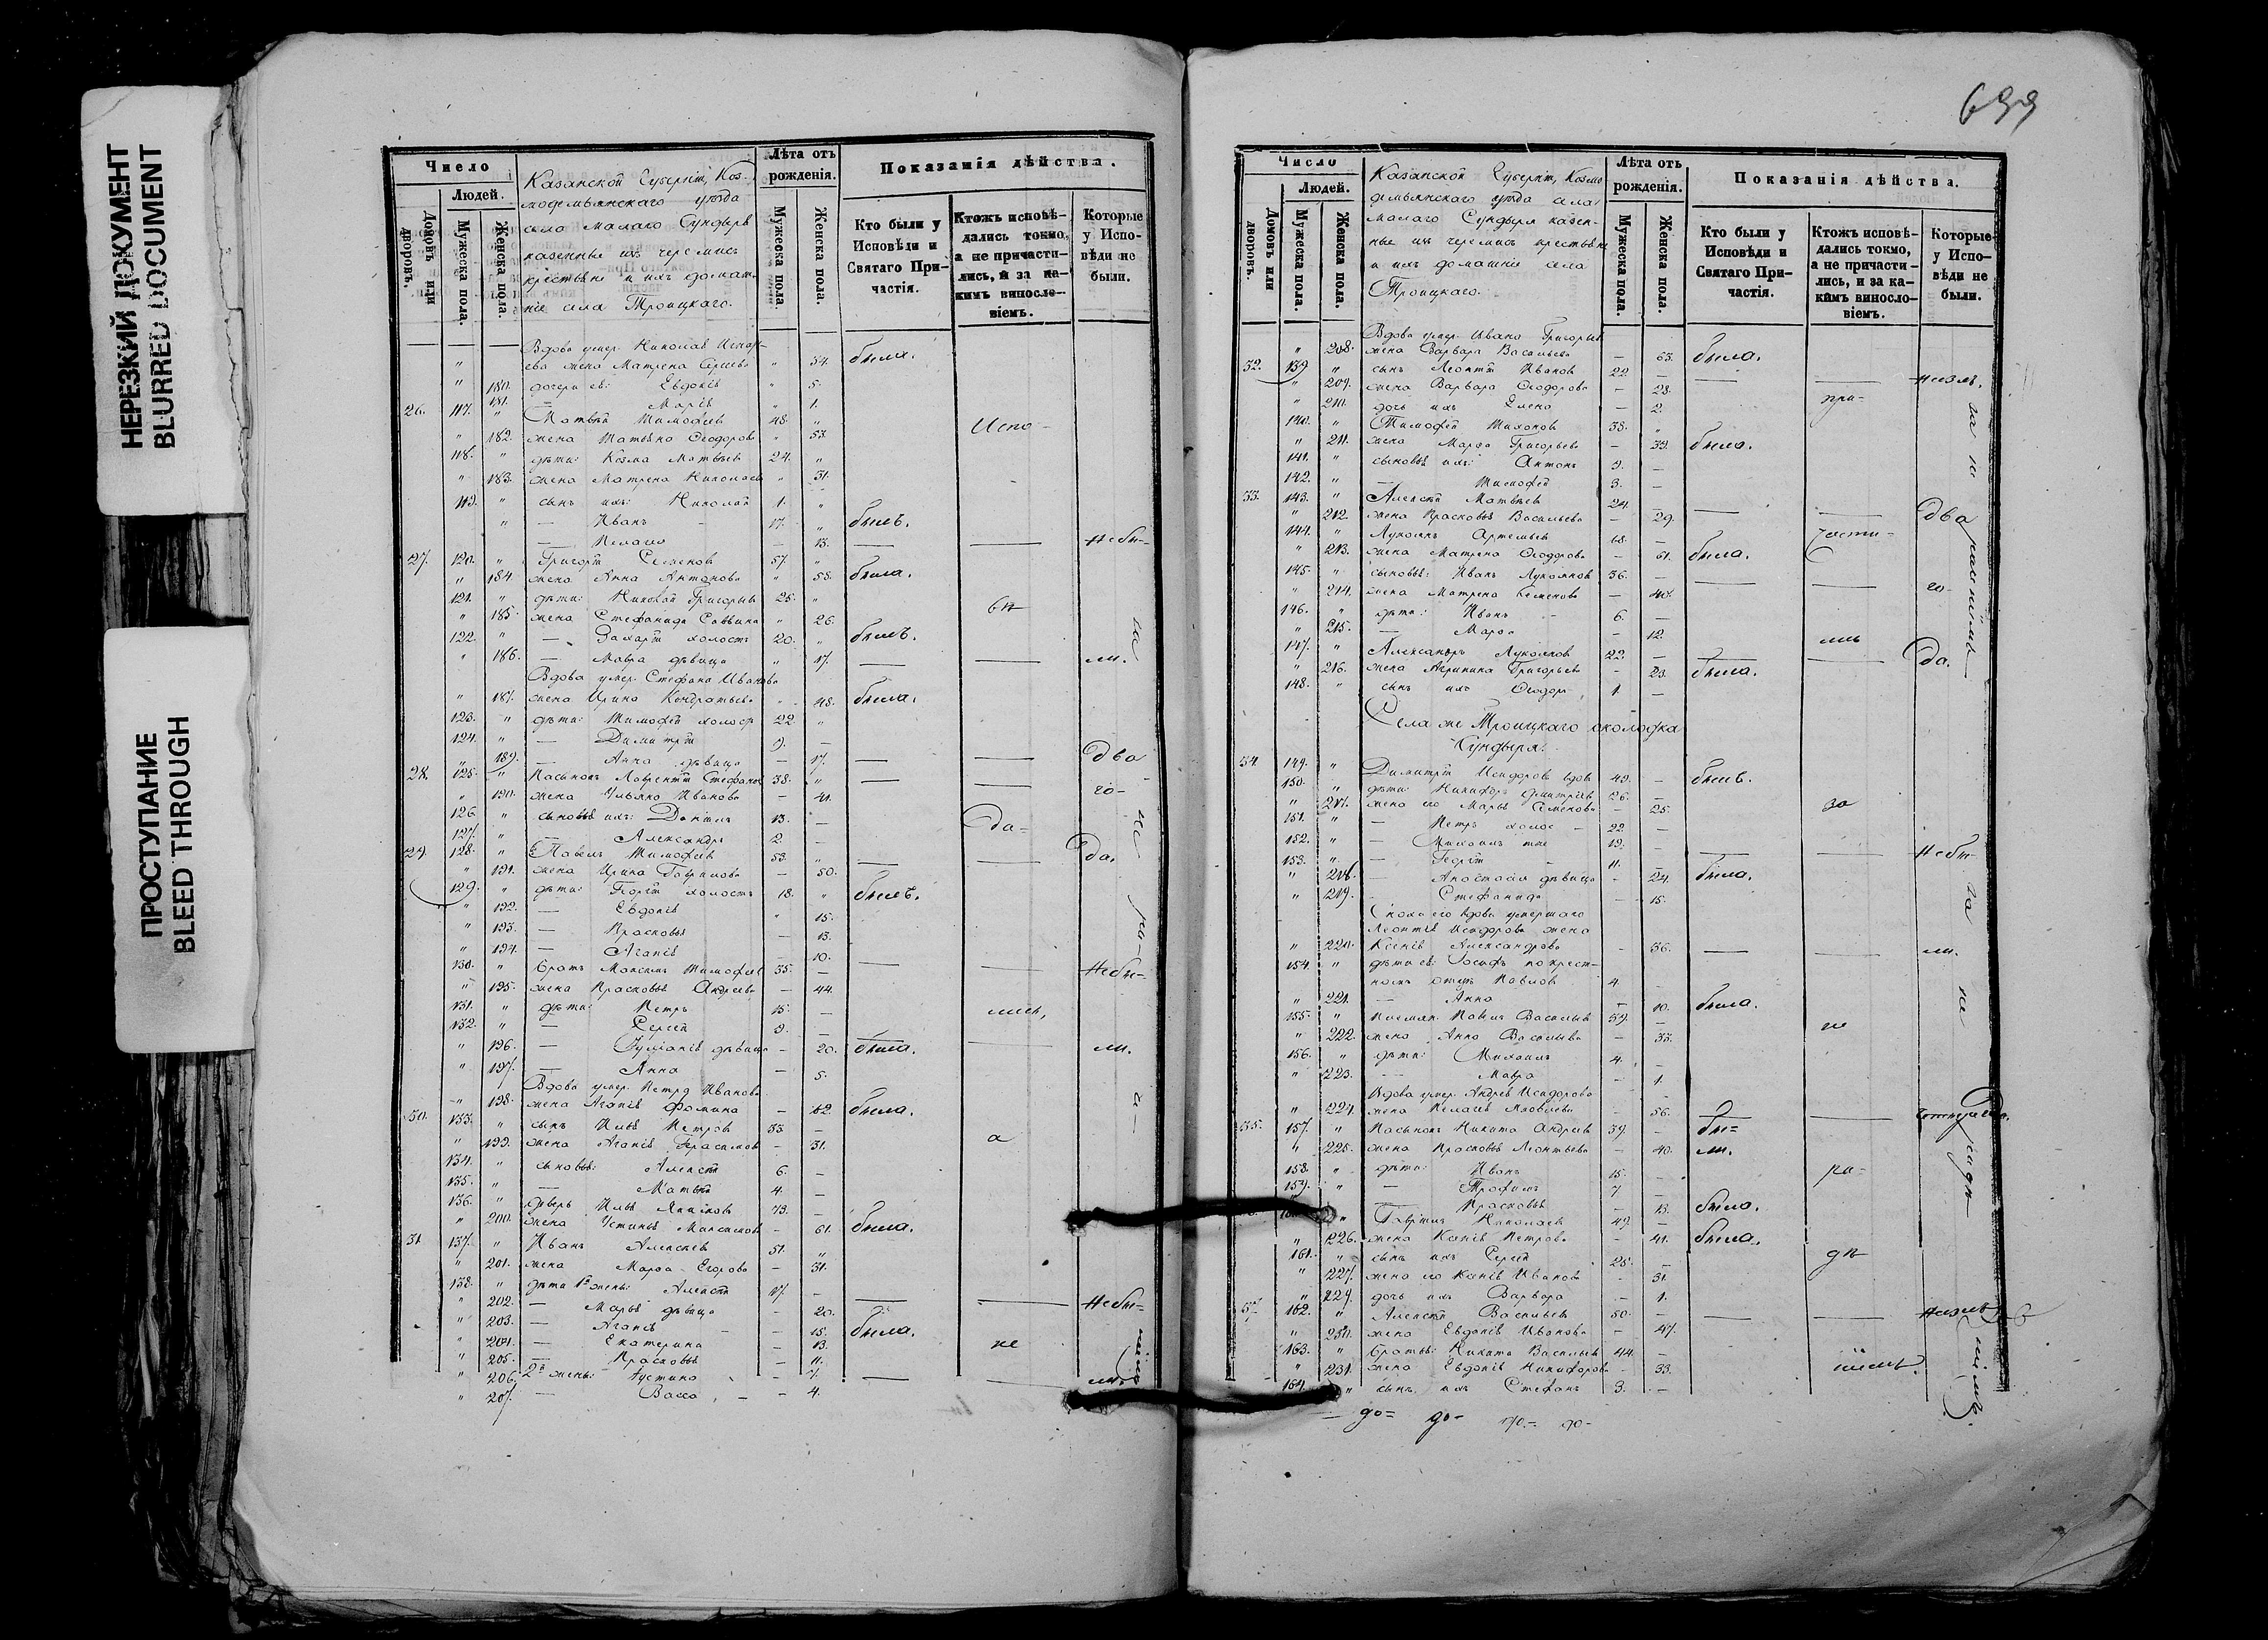 НЕРЕЗКИЙ ДОКУМЕНТ
BLURRED DOCUMENT
ПРОСТУПАНИЕ
BLEED THROUGH
Число
Людей.
Домовъ или дворовъ.
Мужеска пола.
Женска пола.
Казанской Губерніи, Коз-
модемьянскаго уѣзда
села Малаго Сундыря
казенные изъ черемисъ
крестьяне и ихъ домаш-
ніе села Троицкаго.
Лѣта отъ рожденія.
Мужеска пола.
Женска пола.
Показанія дѣйства.
Кто были у Исповѣди и Святаго При-частія.
Ктожъ исповѣ-дались токмо, а не причасти-лись, и за ка-кимъ виносло-віемъ.
Которые у Испо-вѣди не были.
Вдова умер. Николая
жена Матрена " 54. была.
" 180. дочери ея: Евдокія " 5.
" 181. — Марія " 1.
26. 117. " Матвѣй Тимофеевъ 48. " Испо-
" 182. жена Татьяна Ѳеодорова " 53.
118. " дѣти: Козма Матвѣевъ 24. "
" 183. жена Матрена Николаева " 31.
119. " сынъ ихъ: Николай 1. "
" — Иванъ — 17. " былъ.
— Пелагія — 13. — — Небы-
27. 120. " Григорій Семеновъ 57. "
" 184. жена Анна Антонова " 58. была.
121. " дѣти: Николай Григорьевъ 25. "
" 185. жена Стефанида Саввина " 26. вѣ
122. " — Захарій холостъ 20. " былъ.
" 186. — Мавра дѣвица " 17. — — ли.
Вдова умер. Стефана Иванова
" 187. жена Ирина Кондратьева " 48. была.
123. " дѣти: Тимофей холост 22. "
124. " — Димитрій 9. —
" 189. — Анна дѣвица — 17. — — Два
28. 125. " Пасынокъ Лаврентій Стефановъ 38. " — — го-
" 190. жена Ульяна Иванова — 41.
126. " сыновья ихъ: Даніилъ 13. — да-
127. " — Александръ 2. —
29. 128. " Павелъ Тимофеевъ 53. " — — да.
" 191. жена Ирина Гаврилова — 50.
129. " дѣти: Георгій холостъ 18. " былъ.
" 192. — Евдокія " 15.
" 193. — Прасковья — 13.
" 194. — Агапія — 10.
130. " братъ Максимъ Тимофеевъ 35. — — — Небы-
" 195. жена Прасковья Андреева — 44.
131. " дѣти: Петръ 15. — лись,
132. " — Сергей 9. —
" 196. — Іуліанія дѣвица — 20. была. — ли.
" 197. — Анна — 5.
Вдова умер. Петра Иванова
" 198. жена Агапія Фомина — 62. была.
30. 133. " сынъ Илья Петровъ 33. —
" 199. жена Агапія Герасимова — 31. а
134. " сыновья: Алексей 6. —
135. " — Матвѣй 4. —
136. " деверь Илья 73. —
" 200. жена Устинья Максимова — 61. была.
31. 137. " Иванъ Алексеевъ 51. "
" 201. жена Марѳа Егорова — 31.
138. " дѣти 1й жены: Алексей 17. —
" 202. — Марья дѣвица — 20. — — Небы-
" 203. — Агапія — 15. была.
" 204. — Екатерина — 13. не
" 205. — Прасковья — 11.
" 206. 2й жены: Іустина — 7. — — ли.
" 207. — Васса — 4.
699
Число
Людей.
Домовъ или дворовъ.
Мужеска пола.
Женска пола.
Казанской Губерніи, Козмо
демьянскаго уѣзда села
Малаго Сундыря казен-
ные изъ черемисъ крестьяне
и ихъ домашніе села
Троицкаго.
Лѣта отъ рожденія.
Мужеска пола.
Женска пола.
Показанія дѣйства.
Кто были у Исповѣди и Святаго При-частія.
Ктожъ исповѣ-дались токмо, а не причасти-лись, и за ка-кимъ виносло-віемъ.
Которые у Испо-вѣди не были.
Вдова умер. Ивана Григорьева
" 208. жена Варвара Васильева — 63. была.
32. 139. " сынъ Леонтій Ивановъ 22. —
" 209. жена Варвара Ѳеодорова — 23.
" 210. дочь ихъ Елена — 2. при-
140. " Тимофей Тихоновъ 38. "
" 211. жена Марѳа Григорьева — 39. была.
141. " сыновья ихъ: Антонъ 9. —
142. " — Тимофей 3. —
33. 143. " Алексей Матвѣевъ 24. — — Два
" 212. жена Прасковья Васильева — 29.
144. " Лукоянъ Артемьевъ 68. — части-
" 213. жена Матрена Ѳеодорова — 61. была.
145. " сыновья: Иванъ Лукояновъ 36. — — — го-
" 214. жена Матрена Семенова — 40.
146. " дѣти: Иванъ — 6. —
" 215. — Марѳа — 12.
147. " Александръ Лукояновъ 22. — — — да.
" 216. жена Агрипина Григорьева — 23. была.
148. " сынъ ихъ Ѳеодоръ 1. —
Села же Троицкаго околодка
Сундыря.
34. 149. " Димитрій Исидоровъ вдов 49. — былъ.
150. " дѣти: Никифоръ Дмитріевъ 26. —
" 217. жена его Марья Семенова — 25. за
151. " — Петръ холос — 22. —
152. " — Михаилъ 19. — — — Небы-
153. " — Георгій — 11. —
" 218. — Анастасія дѣвица — 24. была.
" 219. — Стефанида — 15.
Сноха его вдова умершаго
Леонтія Исидорова жена
" 220. Ксенія Александрова — 36. — — ли.
154. " дѣти ея: Іосифъ по крест-
номъ отцѣ Павловъ 4. —
" 221. — Анна — 10. была.
155. " Племян. Павелъ Васильевъ 39. — не
" 222. жена Анна Васильева — 33.
156. " дѣти: Михаилъ 4. —
" 223. — Мавра — 1.
Вдова умер. Андрея Исидорова
" 224. жена Пелагея Яковлева — 56.
35. 157. " Пасынокъ Никита Андреевъ 39. — бы=
" 225. жена Прасковья Леонтьева — 40. ли.
158. " дѣти: Иванъ 15. — ра-
159. " — Трофимъ 7 —
— Прасковья — 13. была.
" Гаврилъ Николаевъ 49. —
" 226. жена Ксенія Петрова — 41. была.
161. " сынъ ихъ Сергей 28. — дѣ
" 227. жена его Ксенія Иванова — 31.
" 229. дочь ихъ Варвара — 1.
162. " Алексей Васильевъ 50. —
" 230. жена Евдокія Иванова — 47.
163. " братья: Никита Васильевъ 44. —
" 231. жена Евдокія Никифорова — 33. ніемъ.
164. " сынъ ихъ Стефанъ 3. —